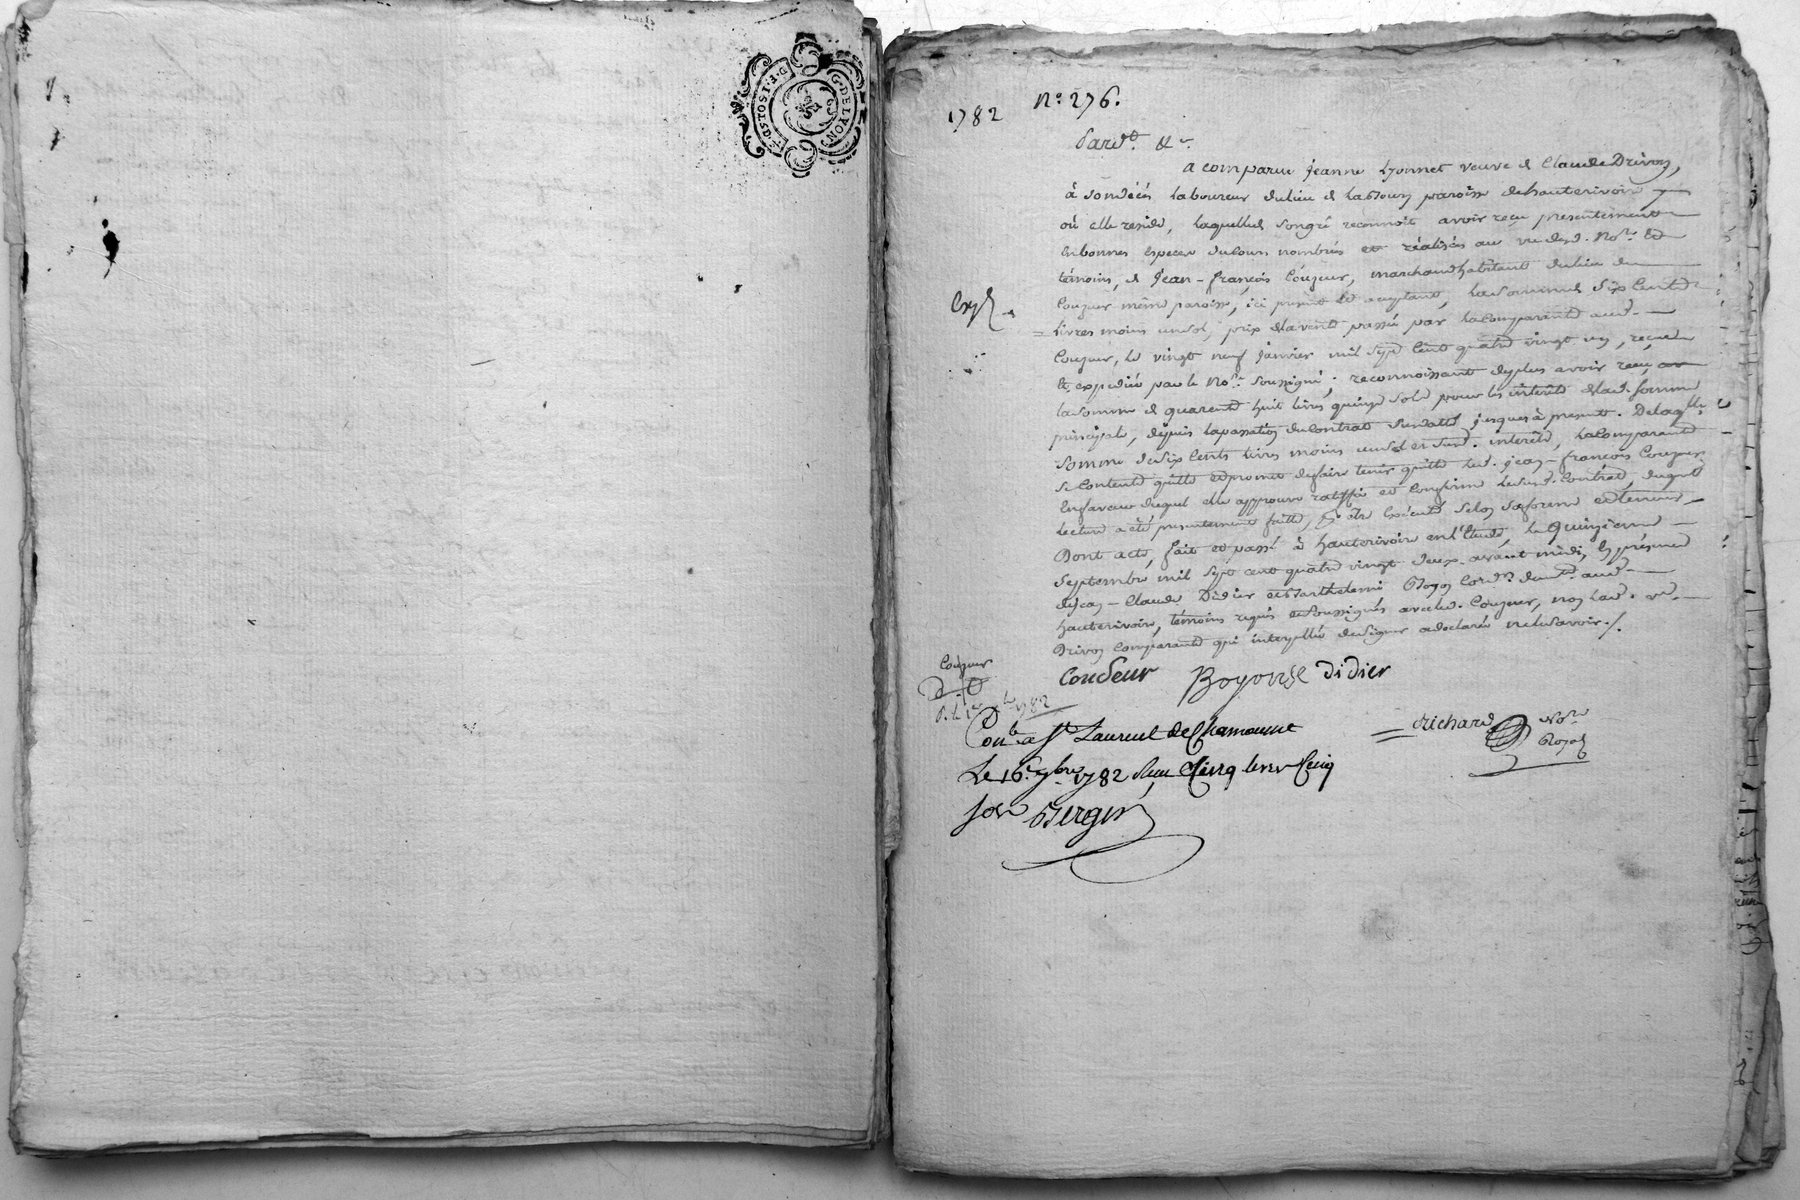 G. DE LYON
1782
No. 276.
Pardt. &c.
a comparue jeanne Lyonnet veuve de Claude Drivon,
à son décès laboureur du lieu de paroisse de hauterivoire
où elle reside, laquelle de son gré reconnoit avoir reçu presentement
en bonnes especes du cours nombrées et réalisées au vu dud. Nore. et
témoins, de jean-françois Couzeur, marchand habitant du lieu du
Couzeur même paroisse, ici present et acceptant, la somme de six cents
livres moins un sol, prix de la vente passée par la comparante aud.
Couzeur, le vingt neuf janvier mil sept cent quatre vingt un, reçue
et expediée par le Nore. soussigné; reconnoissant de plus avoir reçu
la somme de quarente huit livres quinze sols pour les intérêts de lad. somme
principale, depuis la passation du contrat susdatté jusques à present. De laqlle.
somme de six cents livres moins un sol et susd. intérêts, la comparante
se contente quitte et promet de faire tenir quitte led. jean-francois Couzeur
en faveur duquel elle approuve ratiffie et confirme le susd. contrat, duquel
lecture a été presentement faitte, pr. être exécuté selon sa forme et teneur
Dont acte, fait et passé à hauterivoire en l'Etude, le Quinzieme
septembre mil sept cent quatre vingt deux avant midi, en présence
de jean-Claude Didier et Barthelemi Bogon cordr. demts. aud.
hauterivoire, témoins requis et soussignés avec led. Couzeur, non lad. ve.
Drivon comparante qui interpellée de signer a declaré ne le savoir ./.
Couzeur
Couseur didier
1782
Conle. a St. Laurent de Chamousset
Le 16e. 7bre 1782 Reçu Cinq livres Cinq
sols Bergin
Richard Nore.
Royal